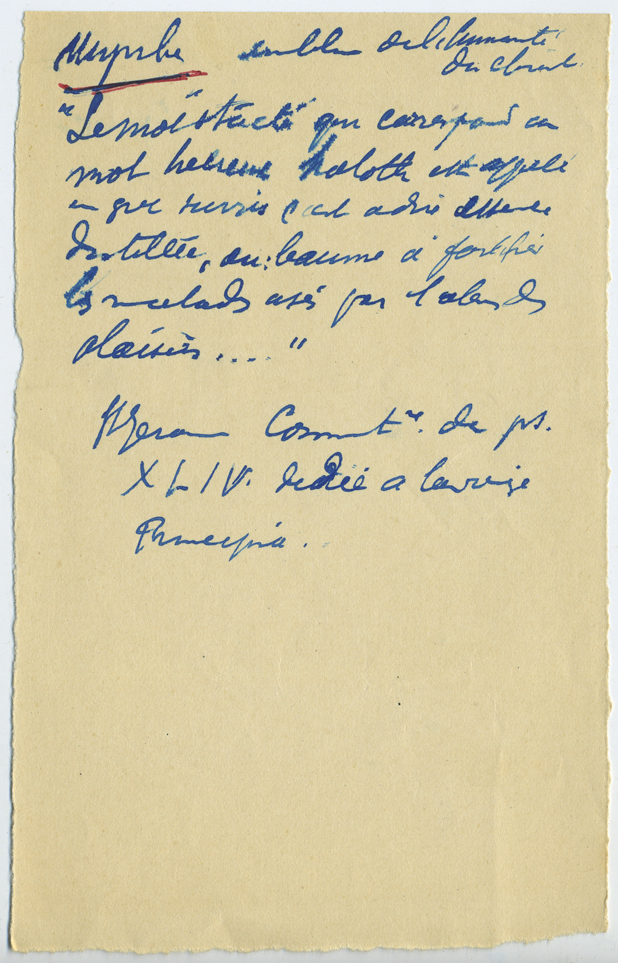 Myrrhe emblème de l'humanité
du Christ.
"Le mot "stacté" qui correspond au
mot hébreux haloth est appelé
en grec c'est à dire essence
distillée, ou: baume à fortifier
les malades usés par l'abus des
plaisirs...."
Comment re. du ps.
XLIV. dédié à la vierge
Principia.